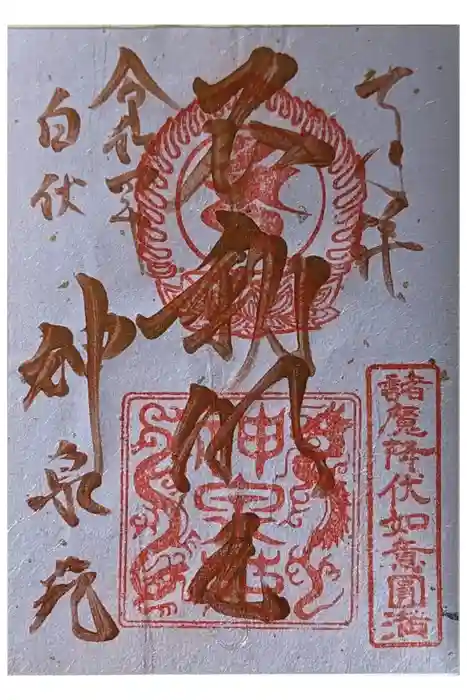 奉拝
諸魔降伏如意圓満
不動明王
神泉苑
令和
神泉苑